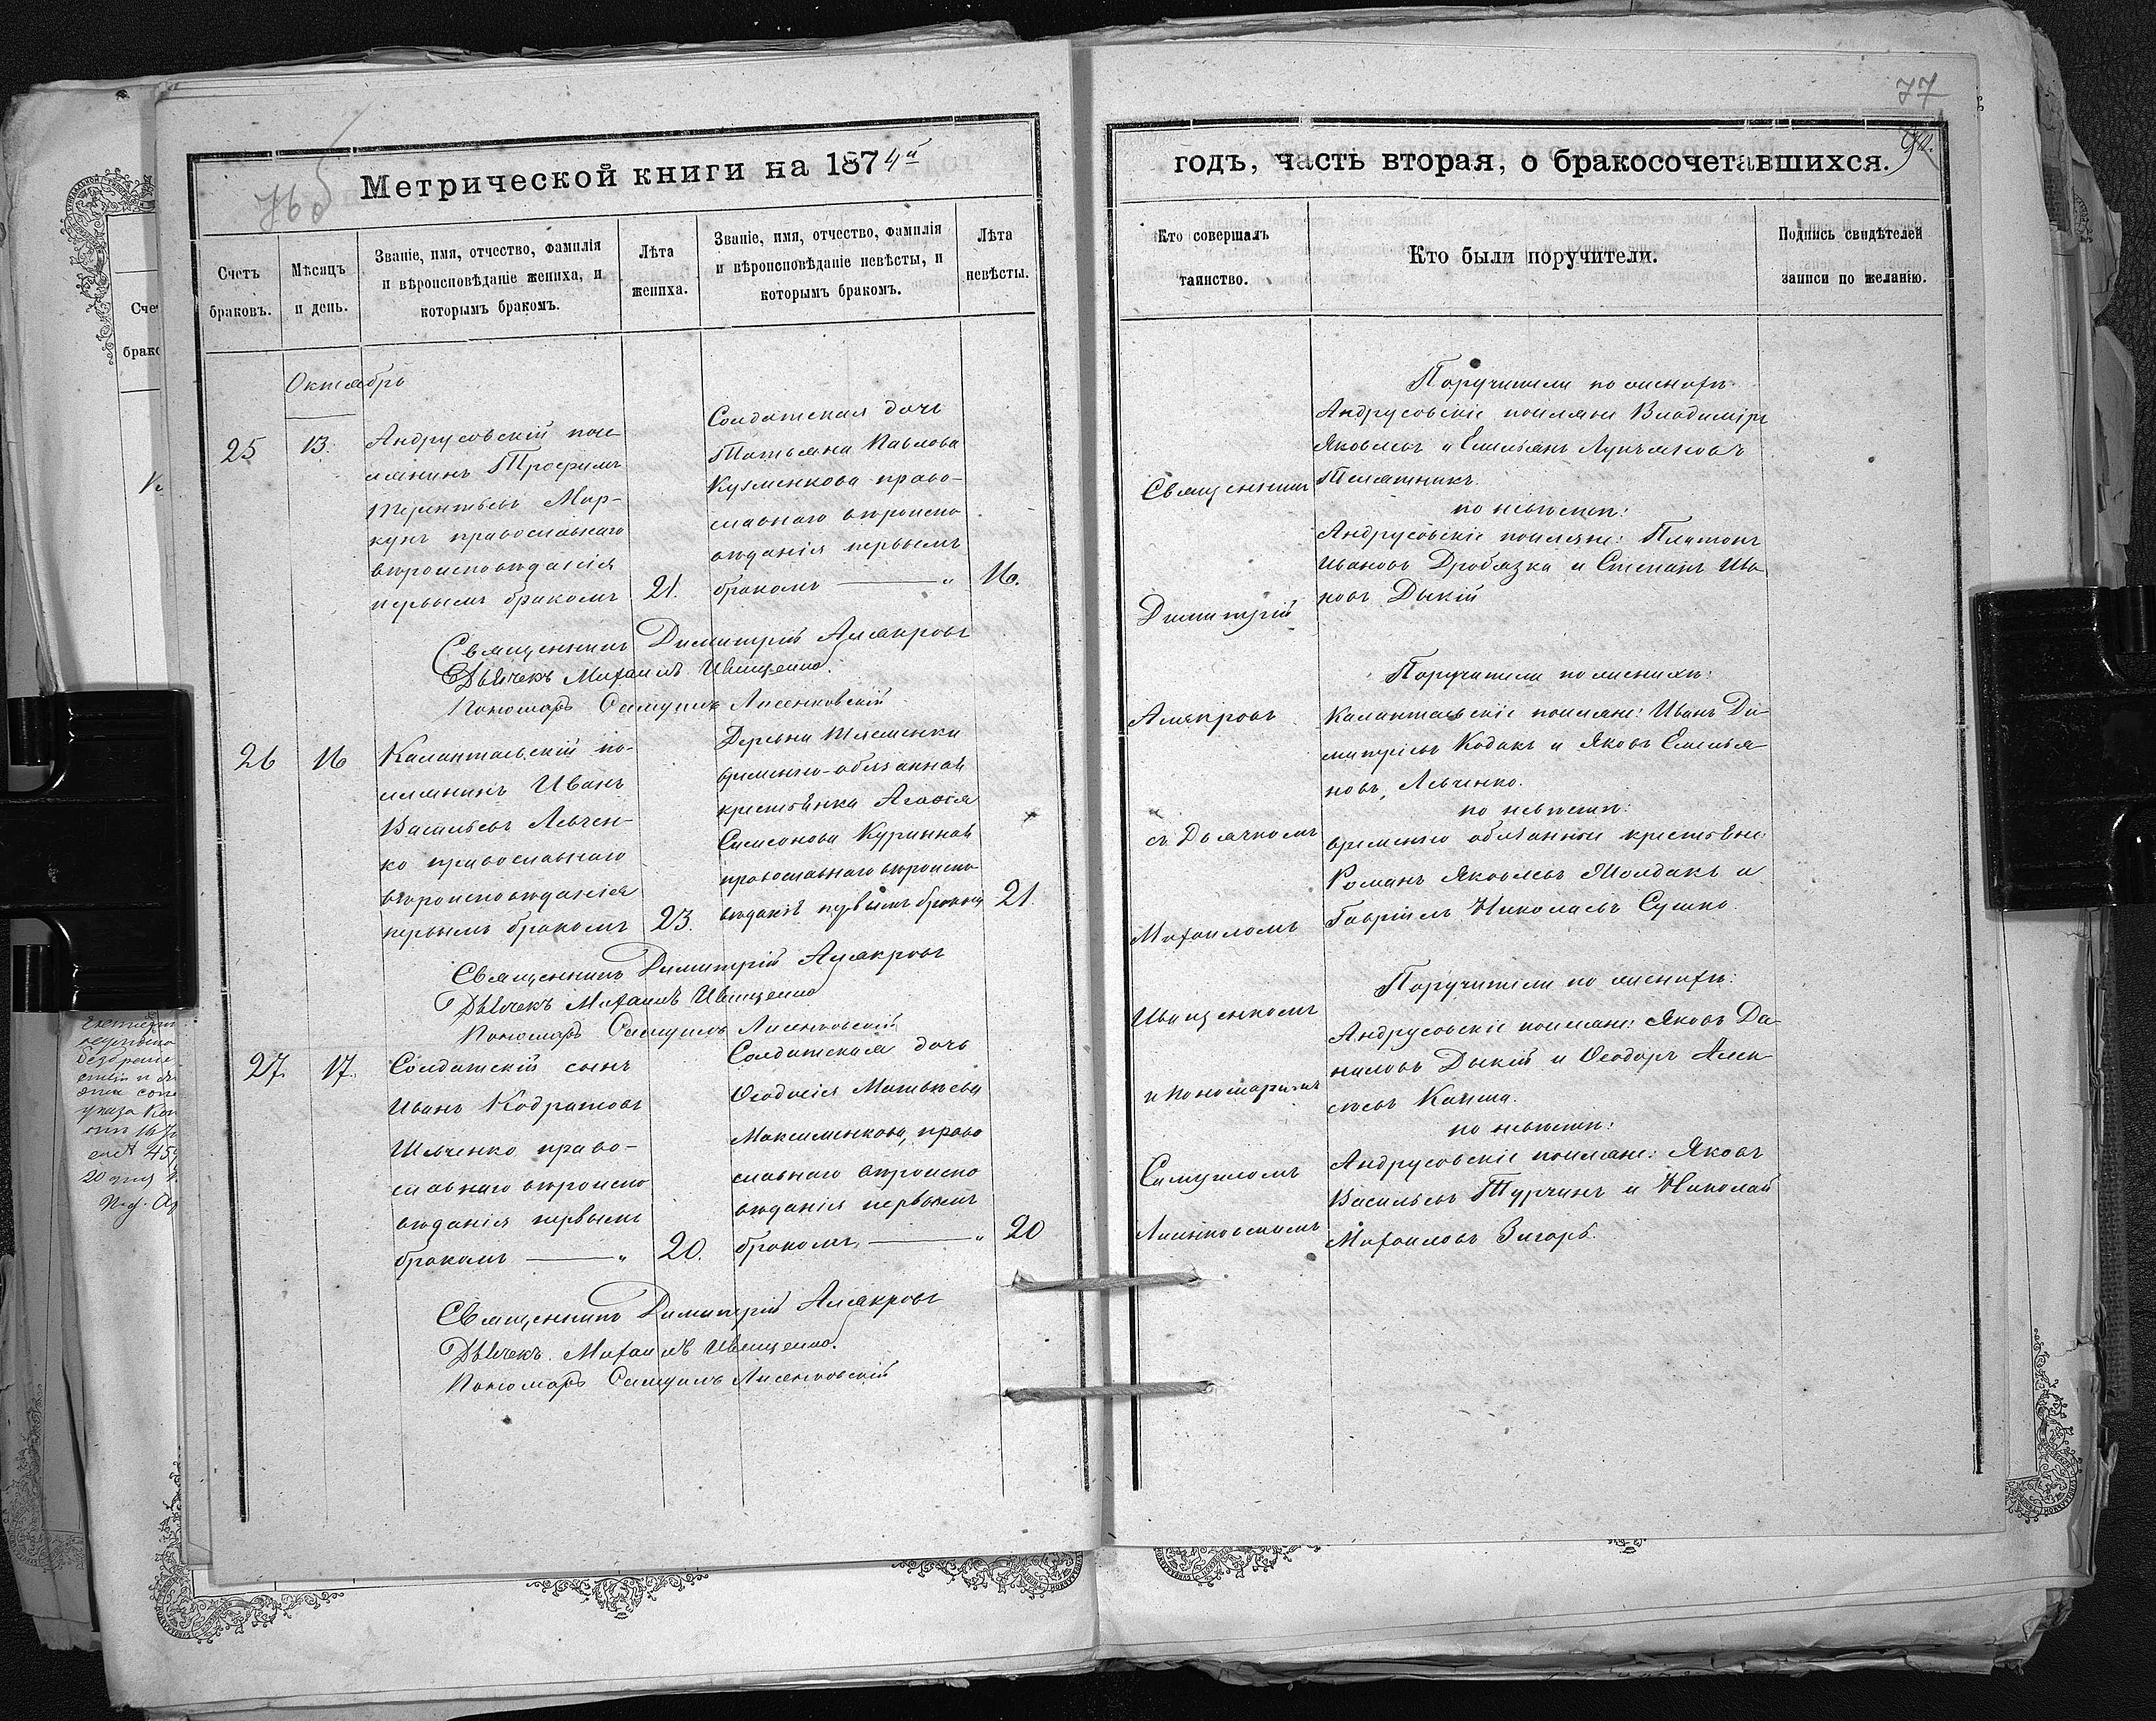 76 б
Метрической книги на 1874й
Счетъ браковъ.
Мѣсяцъ и день.
Званіе, имя, отчество, фамилія
и вѣроисповѣданіе жениха, и
которымъ бракомъ.
Лѣта
жениха.
Званіе, имя, отчество, фамилія
и вѣроисповѣданіе невѣсты, и
которымъ бракомъ.
Лѣта
невѣсты.
Октябрь
25
13.
Андрусовскій посе-
лянинъ Трофимъ
Терентьевъ Мор-
кунъ православнаго
вѣроисповѣданія
первымъ бракомъ
21.
Солдатская дочь
Татьяна Павлова
Кузменкова право-
славнаго вѣроиспо
вѣданія первымъ
бракомъ — „
16.
Священникъ Димитрій Алякровъ
Дьячекъ Михаилъ Иващенко
Пономарь Самуилъ Лисенковскій
26
16
Калантаевскій по-
селянинъ Иванъ
Васильевъ Левчен-
ко православнаго
вѣроисповѣданія
первымъ бракомъ
23.
Деревни
временно-обязанная
крестьянка Агафія
Самсонова Куринная
православнаго вѣроиспо
вѣданія первымъ бракомъ
21.
Священникъ Димитрій Алякровъ
Дьячекъ Михаилъ Иващенко
Пономарь Самуилъ Лисенковскій
27.
17.
Солдатскій сынъ
Иванъ Кодратовъ
Шевченко право-
славнаго вѣроиспо
вѣданія первымъ
бракомъ — „
20.
Солдатская дочь
Ѳеодосія Матвѣева
Максименкова, право
славнаго вѣроиспо
вѣданія первымъ
бракомъ, — „
20
Священникъ Димитрій Алякровъ
Дьячекъ Михаилъ Иващенко.
Пономарь Самуилъ Лисенковскій
77
годъ, часть вторая, о бракосочетавшихся.
Кто совершалъ
таинство.
Кто были поручители.
Подпись свидѣтелей
записи по желанію.
Священникъ
Димитрій
Алякровъ
съ Дьячкомъ
Михаиломъ
Иващенкомъ
и Пономаремъ
Самуиломъ
Лисенковскимъ
Поручители по женихѣ:
Андрусовскіе поселяне Владиміръ
Яковлевъ и Емельянъ Лукьяновъ
Телятникъ.
по невѣстѣ:
Андрусовскіе поселяне: Платонъ
Ивановъ Дробязка и Степанъ Ива
новъ Дикій
Поручители по женихѣ:
Калантаевскіе поселяне: Иванъ Ди-
митріевъ Кодакъ и Яковъ Емелья-
новъ, Левченко.
по невѣстѣ:
временно обязанные крестьяне:
Романъ Яковлевъ Шолдакъ и
Гавріилъ Николаевъ Сушко.
Поручители по женихѣ:
Андрусовскіе поселяне: Яковъ Да-
ниловъ Дикій и Ѳеодоръ Алек-
сѣевъ Качша.
по невѣстѣ:
Андрусовскіе поселяне: Яковъ
Васильевъ Турчинъ и Николай
Михаиловъ Зигорь.